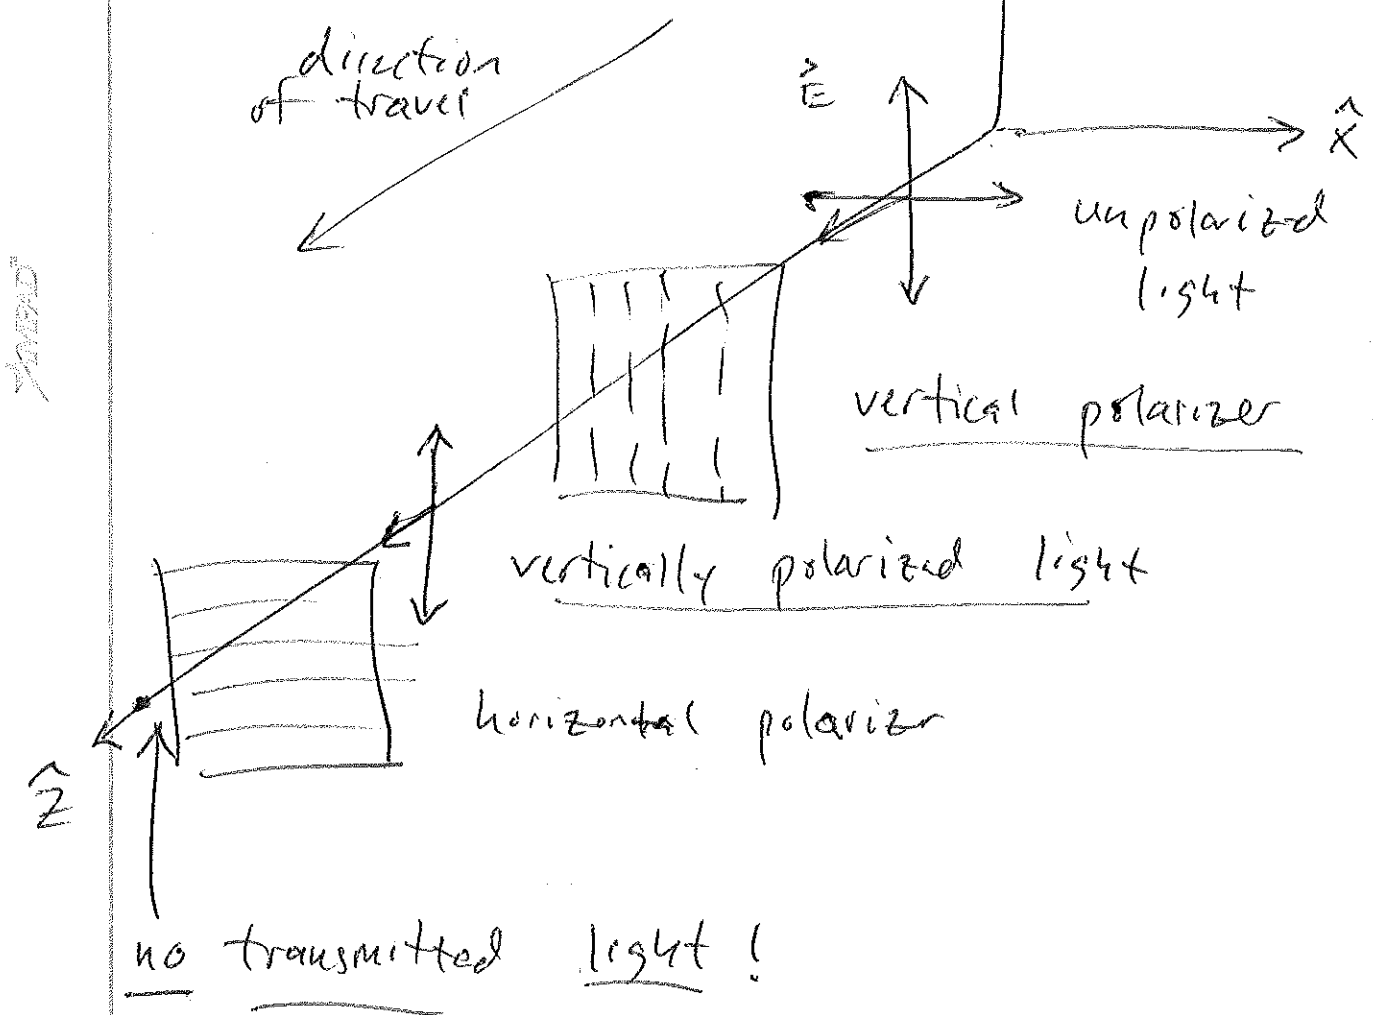 direction
of travel
E⃗
x̂
unpolarized
light
vertical polarizer
vertically polarized light
horizontal polarizer
ẑ
no transmitted light !
AMPAD